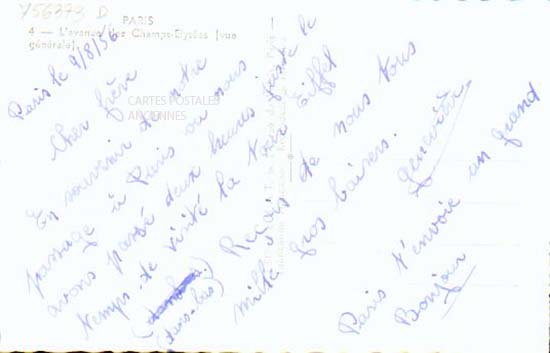 756373 D
PARIS
4 — L'avenue des Champs-Elysées (vue
générale).
CARTES POSTALES
ANCIENNES
Paris le 9/8/56
Cher frère
En souvenir de notre
passage à Paris ou nous
avons passé deux heures juste le
temps de visité la tour Eiffel
(dans-bas) Reçois de nous tous
mille gros baisers.
Geneviève
Paris t'envoie un grand
Bonjour